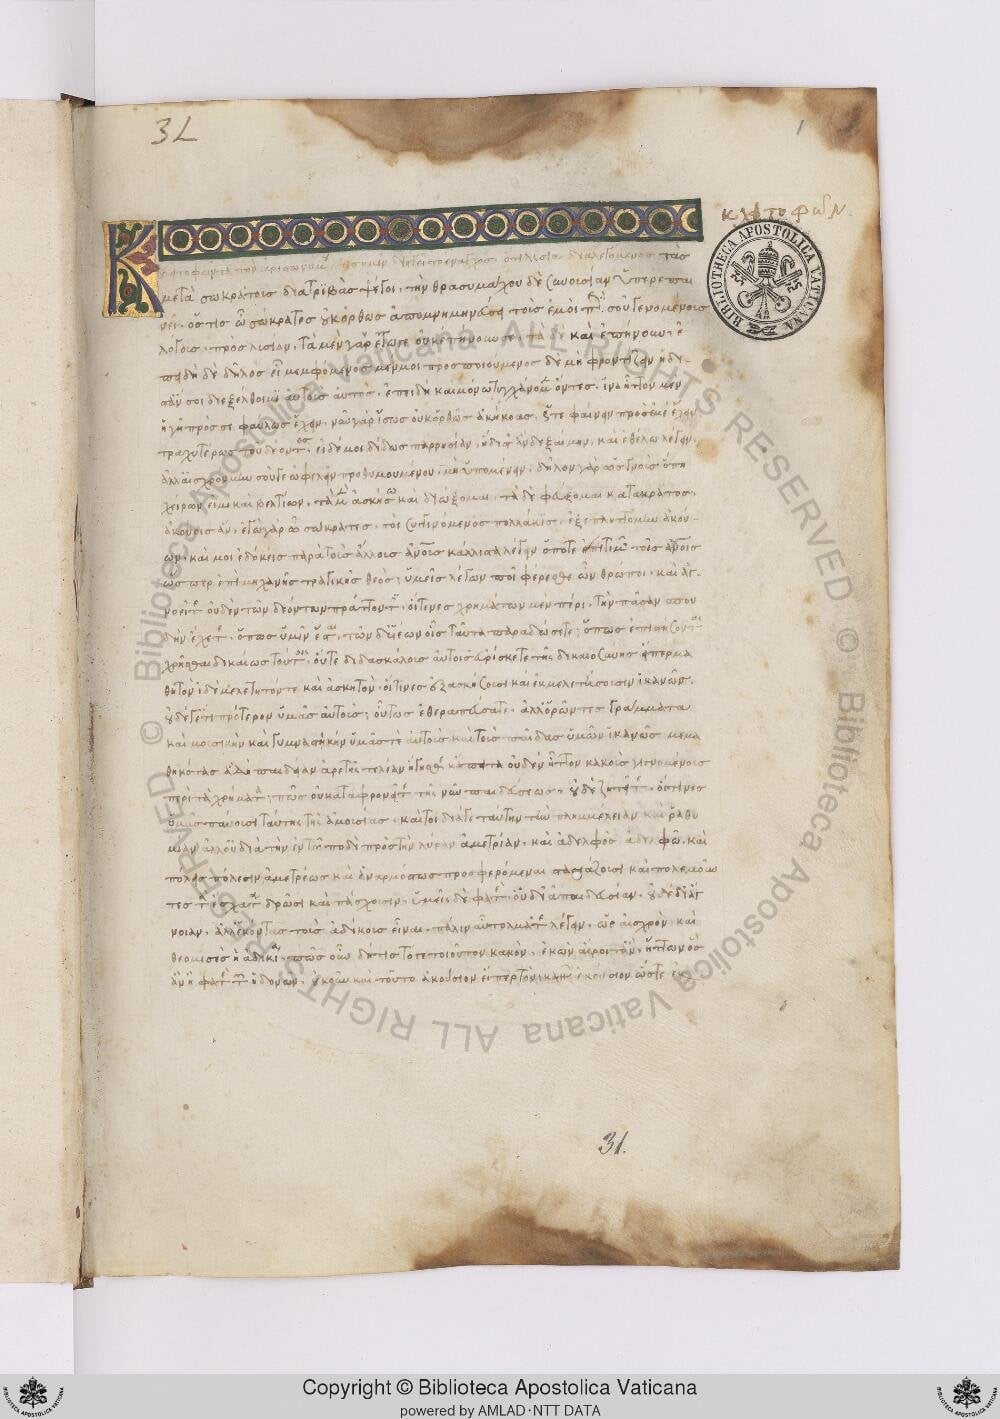 3L
1
κλιτοφῶν.
μετὰ σωκράτους διατριβὰς ψέγοι, τὴν θρασυμάχου δὲ συνουσίαν ὑπερεπαι
νεῖ. ὅστις ὦ σώκρατες οὐκ ὀρθῶς τοὺς ἐμοὶ σοῦ γενομένους
λόγους πρὸς λυσίαν. τὰ μὲν γὰρ ἔγωγε οὐκ ἐπήνουν σε, τὰ δὲ καὶ ἐπήνουν. ἐ
δὲ δῆλος εἶ μεμφόμενος μέν μοι προσποιούμενος δὲ φροντίζειν
σοι διεξέλθοιμι αὐτοὺς αὐτός, ἐπειδὴ καὶ μόνω τυγχάνομεν ὄντες, ἵνα ἧττον
πρὸς σὲ φαύλως ἔχειν. νῦν γὰρ ἴσως οὐκ ὀρθῶς ἀκήκοας. πρὸς ἐμὲ ἔχειν
τραχυτέρως τοῦ δέοντος. εἰ δέ μοι δίδως παρρησίαν, ἥδιστα ἂν δεξαίμην, καὶ ἐθέλω λέγειν.
ἀλλ' αἰσχρὸν μὴν σοῦ γε ὠφελεῖν προθυμουμένου, μὴ ὑπομένειν. δῆλον γὰρ ὡς γνοὺς ὅπη
χείρων εἰμὶ καὶ βελτίων, τὰ μὲν ἀσκήσω καὶ διώξομαι. τὰ δὲ φεύξομαι κατὰ κράτος.
ἀκούοις ἄν. ἐγὼ γὰρ ὦ σώκρατες. σοὶ συγγιγνόμενος πολλάκις. ἐξεπληττόμην ἀκού
ων. καί μοι ἐδόκεις παρὰ τοὺς ἄλλους ἀνθρώπους κάλλιστα λέγειν ὁπότε ἐπιτιμῶν τοῖς ἀνθρώποις
ὥσπερ ἐπὶ μηχανῆς τραγικῆς θεός, ὑμνεῖς λέγων ποῖ φέρεσθε ὦνθρωποι. καὶ ἀγ
νοεῖτε οὐδὲν τῶν δεόντων πράττοντες. οἵτινες χρημάτων μὲν πέρι, τὴν πᾶσαν σπου
δὴν ἔχετε, ὅπως ὑμῖν ἔσται. τῶν δ' υἱέων οἷς ταῦτα παραδώσετε, ὅπως ἐπιστήσονται
χρῆσθαι δικαίως τούτοις. οὔτε διδασκάλους αὐτοῖς εὑρίσκετε τῆς δικαιοσύνης εἴπερ μα
θητόν. εἰ δὲ μελετητόν τε καὶ ἀσκητόν. οἵτινες ἐξασκήσουσι καὶ ἐκμελετήσουσιν ἱκανῶς.
οὐδέ γ' ἔτι πρότερον ὑμᾶς αὐτοὺς, οὕτως ἐθεραπεύσατε. ἀλλ' ὁρῶντες γράμματα
καὶ μουσικὴν καὶ γυμναστικὴν ὑμᾶς τε αὐτοὺς καὶ τοὺς παῖδας ὑμῶν ἱκανῶς μεμα
θηκότας παιδείαν ἀρετῆς τελέαν οὐδὲν ἧττον κακοὺς γιγνομένους
περὶ τὰ χρήματα, πῶς οὐ καταφρονεῖτε τῆς νῦν παιδεύσεως. οὐδὲ ζητεῖτε. οἵτινες
ὑμᾶς παύσουσι ταύτης τῆς ἀμουσίας. καίτοι διά γε ταύτην τὴν πλημμέλειαν καὶ ῥᾳθυ
μίαν ἀλλ' οὐ διὰ τὴν ἐν τῷ ποδὶ πρὸς τὴν λύραν ἀμετρίαν. καὶ ἀδελφὸς ἀδελφῷ. καὶ
πόλις πόλεσιν ἀμέτρως καὶ ἀναρμόστως προσφερόμεναι στασιάζουσι καὶ πολεμοῦν
τες τὰ ἔσχατα δρῶσι καὶ πάσχουσιν. ὑμεῖς δέ φατε. οὐ δι' ἀπαιδευσίαν. οὐδὲ δι' ἄγ
νοιαν. ἀλλ' ἑκόντας τοὺς ἀδίκους εἶναι. πάλιν αὖ τολμᾶτε λέγειν. ὡς αἰσχρὸν καὶ
θεομισὲς ἡ ἀδικία. πῶς οὖν δή τις τό γε τοιοῦτον κακὸν. ἑκὼν αἱροῖτ' ἄν. ἥττων ὃς
ἂν ᾖ φατὲ τῶν ἡδονῶν. οὐκοῦν καὶ τοῦτο ἀκούσιον εἴπερ τὸ νικᾶν ἑκούσιον ὥστε ἐκ
31.
BIBLIOTHECA APOSTOLICA VATICANA
© Biblioteca Apostolica Vaticana ALL RIGHTS RESERVED © Biblioteca Apostolica Vaticana ALL RIGHTS RESERVED
BIBLIOTECA APOSTOLICA VATICANA
Copyright © Biblioteca Apostolica Vaticana
powered by AMLAD · NTT DATA
BIBLIOTECA APOSTOLICA VATICANA